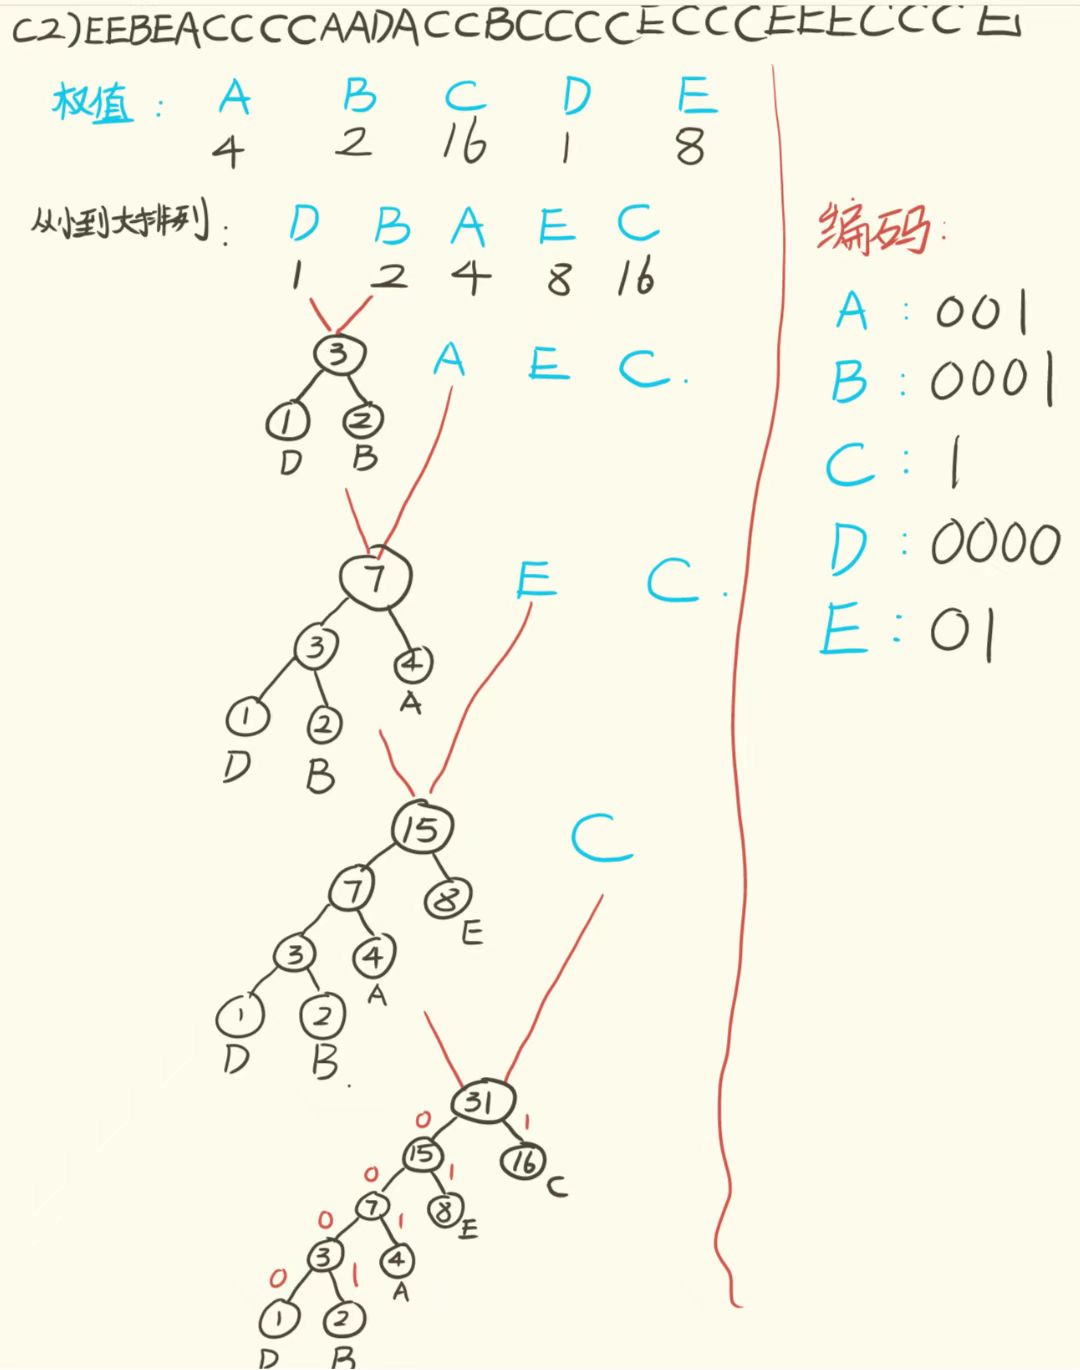 (2) EEBEACCCCAADACCBCCCCECCCEEECCCE
权值: A B C D E
4 2 16 1 8
从小到大排列: D B A E C
1 2 4 8 16
3 A E C.
1 2
D B
7 E C.
3 4
A
1 2
D B
15 C
7 8
E
3 4
A
1 2
D B.
31
0 1
15 16
C
0 1
7 8
E
0 1
3 4
A
0 1
1 2
D B
编码:
A: 001
B: 0001
C: 1
D: 0000
E: 01